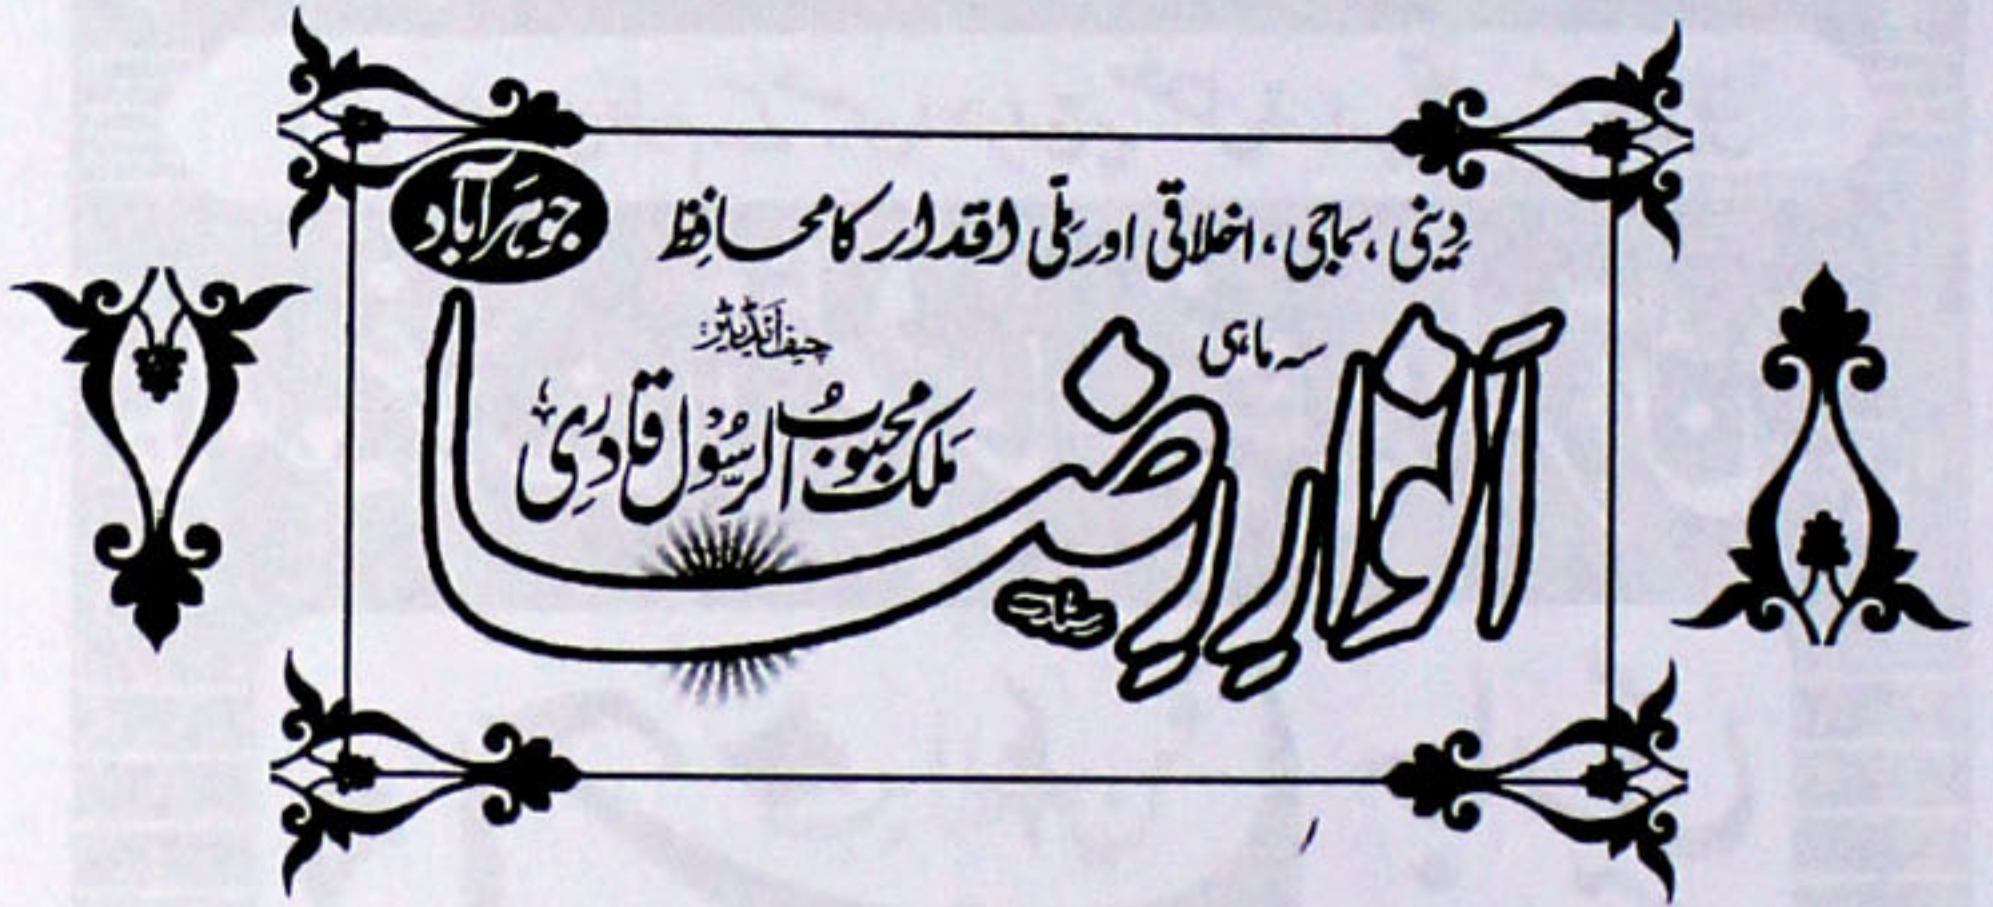 دینی، سماجی، اخلاقی اور ملّی اقدار کا محافظ
جوہرآباد
سہ ماہی
انوار رضا
چیف ایڈیٹر:
ملک محبوب الرسول قادری